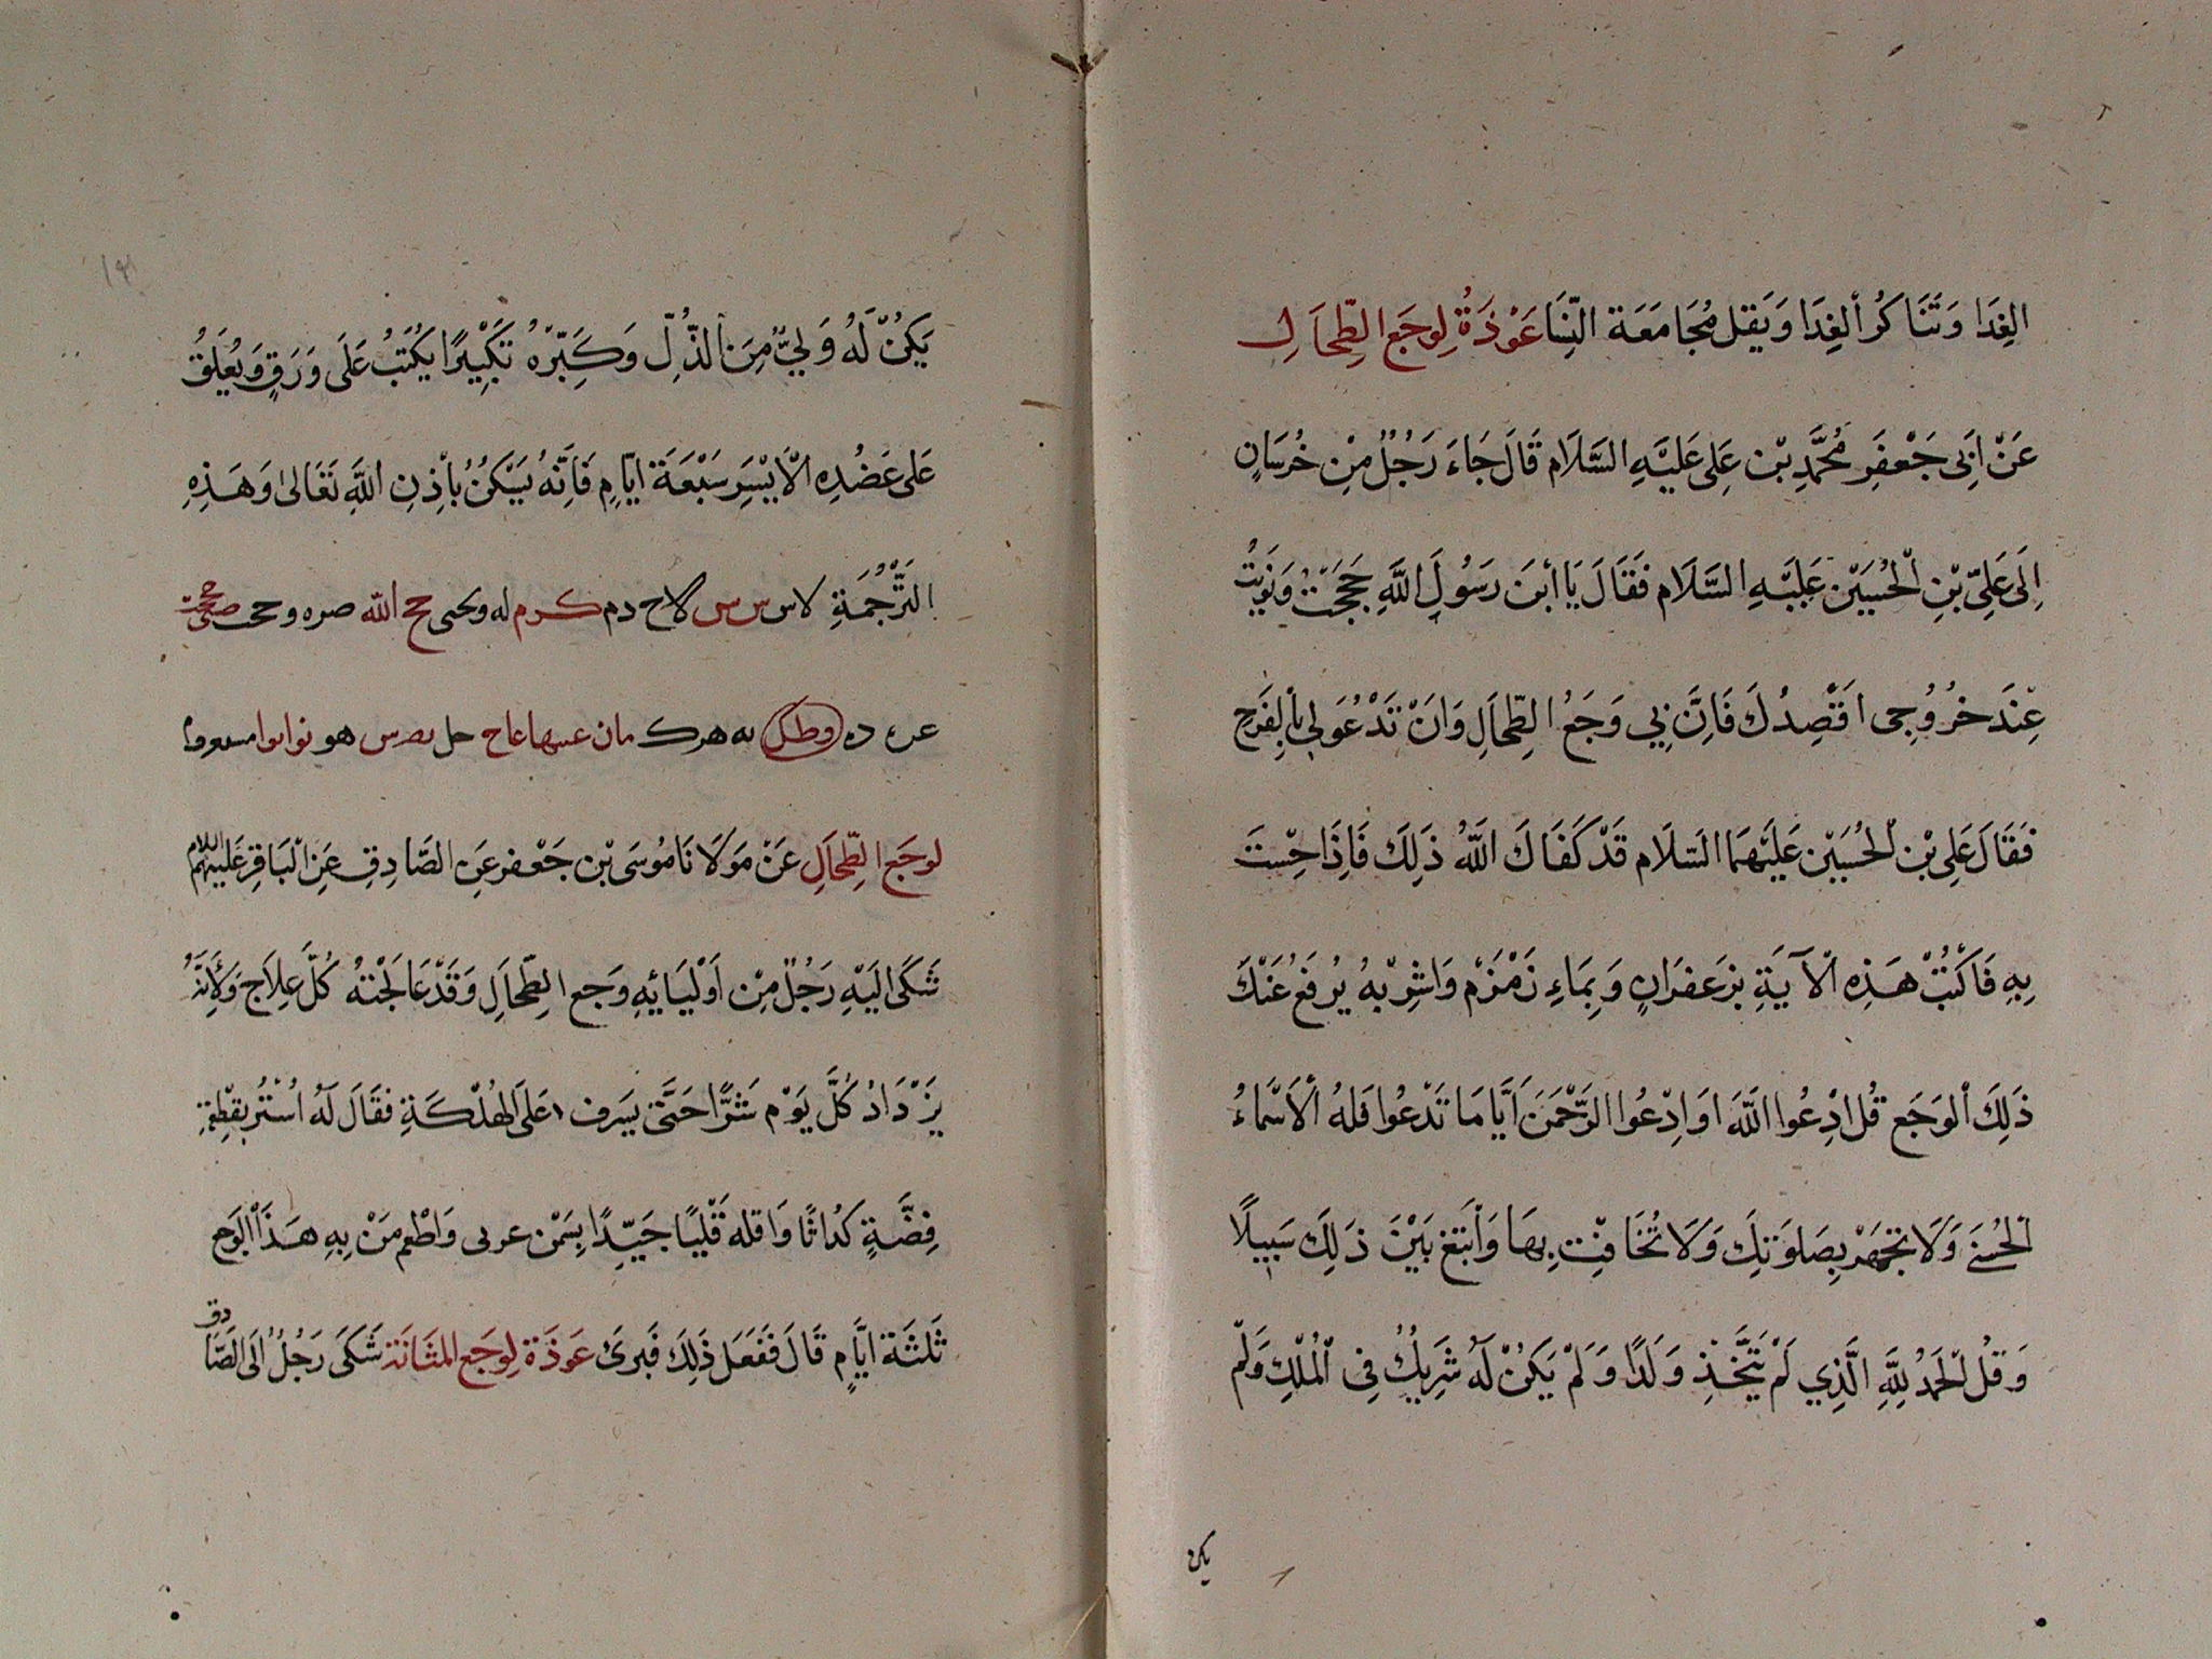 الغِدَا وَتَنَاكُر الغِدَا وَيَقِل مُجَامَعَة النِّسَا عَوْذَةُ لِوجَع الطِّحَالِ
عَنْ اَبِى جَعْفَرِ مُحَمَّدِ بْن عَلِى عَلَيْهِ السَّلَام قَالَ جَاءَ رَجُلٌ مِنْ خُرَسَانٍ
اِلَى عَلِىّ بْنِ الْحُسَيْن عَلَيْهِ السَّلَام فَقَالَ يَا اْبنَ رَسُولِ اللَّهِ حَجَجَتْ وَنَوَيْتُ
عِنْدَ خُرُوجِى اَقْصِدُكَ فَاِنَّ بِي وَجَعُ الطِّحَالِ وَانْ تَدْعُوَلِى بِاْلفَرَجِ
فَقَالَ عَلِى بْن الْحُسَيْن عَلَيْهِمَا السَّلَام قَدْ كَفَاكَ اللَّهُ ذَلِكَ فَاِذَا حِسْتَ
بِهِ فَاكْتُبْ هَذِه الْآيَةِ بِزَعفَرَانٍ وَبِمَاءِ زَمْزَمْ وَاشْرِبْهُ يُرفَعُ عَنْكَ
ذَلِكَ اْلوَجَع قُل ادْعُوا اللَّهَ اوَادْعُوا الرَّحْمَنَ اَيَّامَا تَدْعُوا فَلهُ الْاَسْمَاءُ
الْحُسْنَى وَلَا تَجْهَرْ بِصَلوَتِكَ وَلَا تُخَافِتْ بِهَا وَابْتَغِ بَيْنَ ذَلِكَ سَبِيلًا
وَقُل الْحَمْدُ لِلَّهِ الَّذِي لَمْ يَتَّخِذْ وَلَدًا وَلَمْ يَكُنْ لَهُ شَرِيكٌ فِى الْمُلْكِ وَلَمْ
يكن
يَكُنْ لَهُ وَلِيٌّ مِنَ الذُّلِّ وَكَبِّرْهُ تَكْبِيْرًا يُكْتَبُ عَلَى وَرَقٍ وَيُعَلَّقُ
عَلى عَضُدِهِ الْاَيْسَرِ سَبْعَةَ ايَّامٍ فَاِنَّهُ يَسْكُنُ بِاْذِنِ اللَّهِ تَعَالىٰ وَهَذِهِ
التَّرْجُمَةِ لاس س س لاح دم كرم له وىحى حح الله صره وحح
ده وطل به هرك مان عىها عاح حل ىصرس هو ىواىوا
لوجَع الطِّحَالِ عَنْ مَولَانَا مُوسَى بْن جَعْفر عَنِ الصَّادِقِ عَنِ الْبَاقِرِ عَلَيْهِمُ السَّلام
شَكَى الَيْهِ رَجُلٌ مِنْ اَوْلِيَائِهِ وَجع الطِّحَالِ وَقَدْ عَالَجْتهُ كُلَّ عِلَاج وَلِاَنَّهُ
يَزْدَادُ كُلَّ يَوْم شَرًّا حَتَّى يسَرِف عَلَى الهُلْكَةِ فَقَالَ لَهُ اشْتُر بِقِطْعَةِ
فِضَّةٍ كُرَاثًا وَاقله قَلْيًا جَيّدًا بِسَمْنِ عربى وَاَطْعِم مَنْ بِهِ هَذَا الوَجع
ثَلثَةَ ايَّامٍ قَالَ فَفَعَلَ ذَلِكَ فَبَرِئَ عَوذَة لِوَجَع المثَانَة شَكَى رَجُلٌ اِلَى الصَّادق